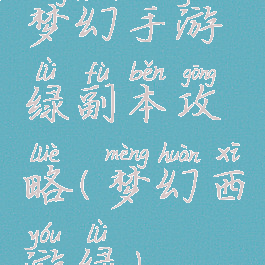 梦幻手游
lǜ fù běn gōng
绿副本攻
lüè mèng huàn xī
略(梦幻西
yóu lǜ
游绿)